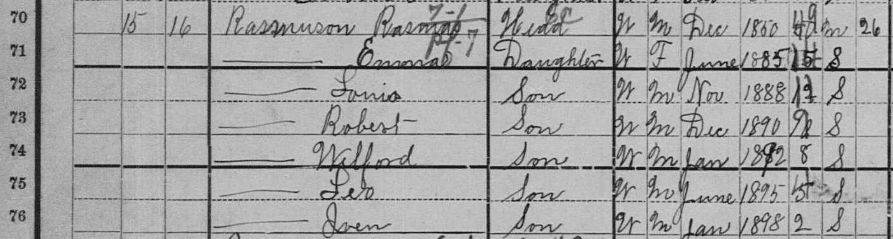 70 15 16 Rasmuson Rasmus Head W M Dec 1850 49 M 26
71 —— Emma Daughter W F June 1885 S
72 —— Louis Son W M Nov. 1888 S
73 —— Robert Son W M Dec 1890 S
74 —— Wilford Son W M Jan 1892 8 S
75 —— Leo Son W M June 1895 S
76 —— Iven Son W M Jan 1898 2 S